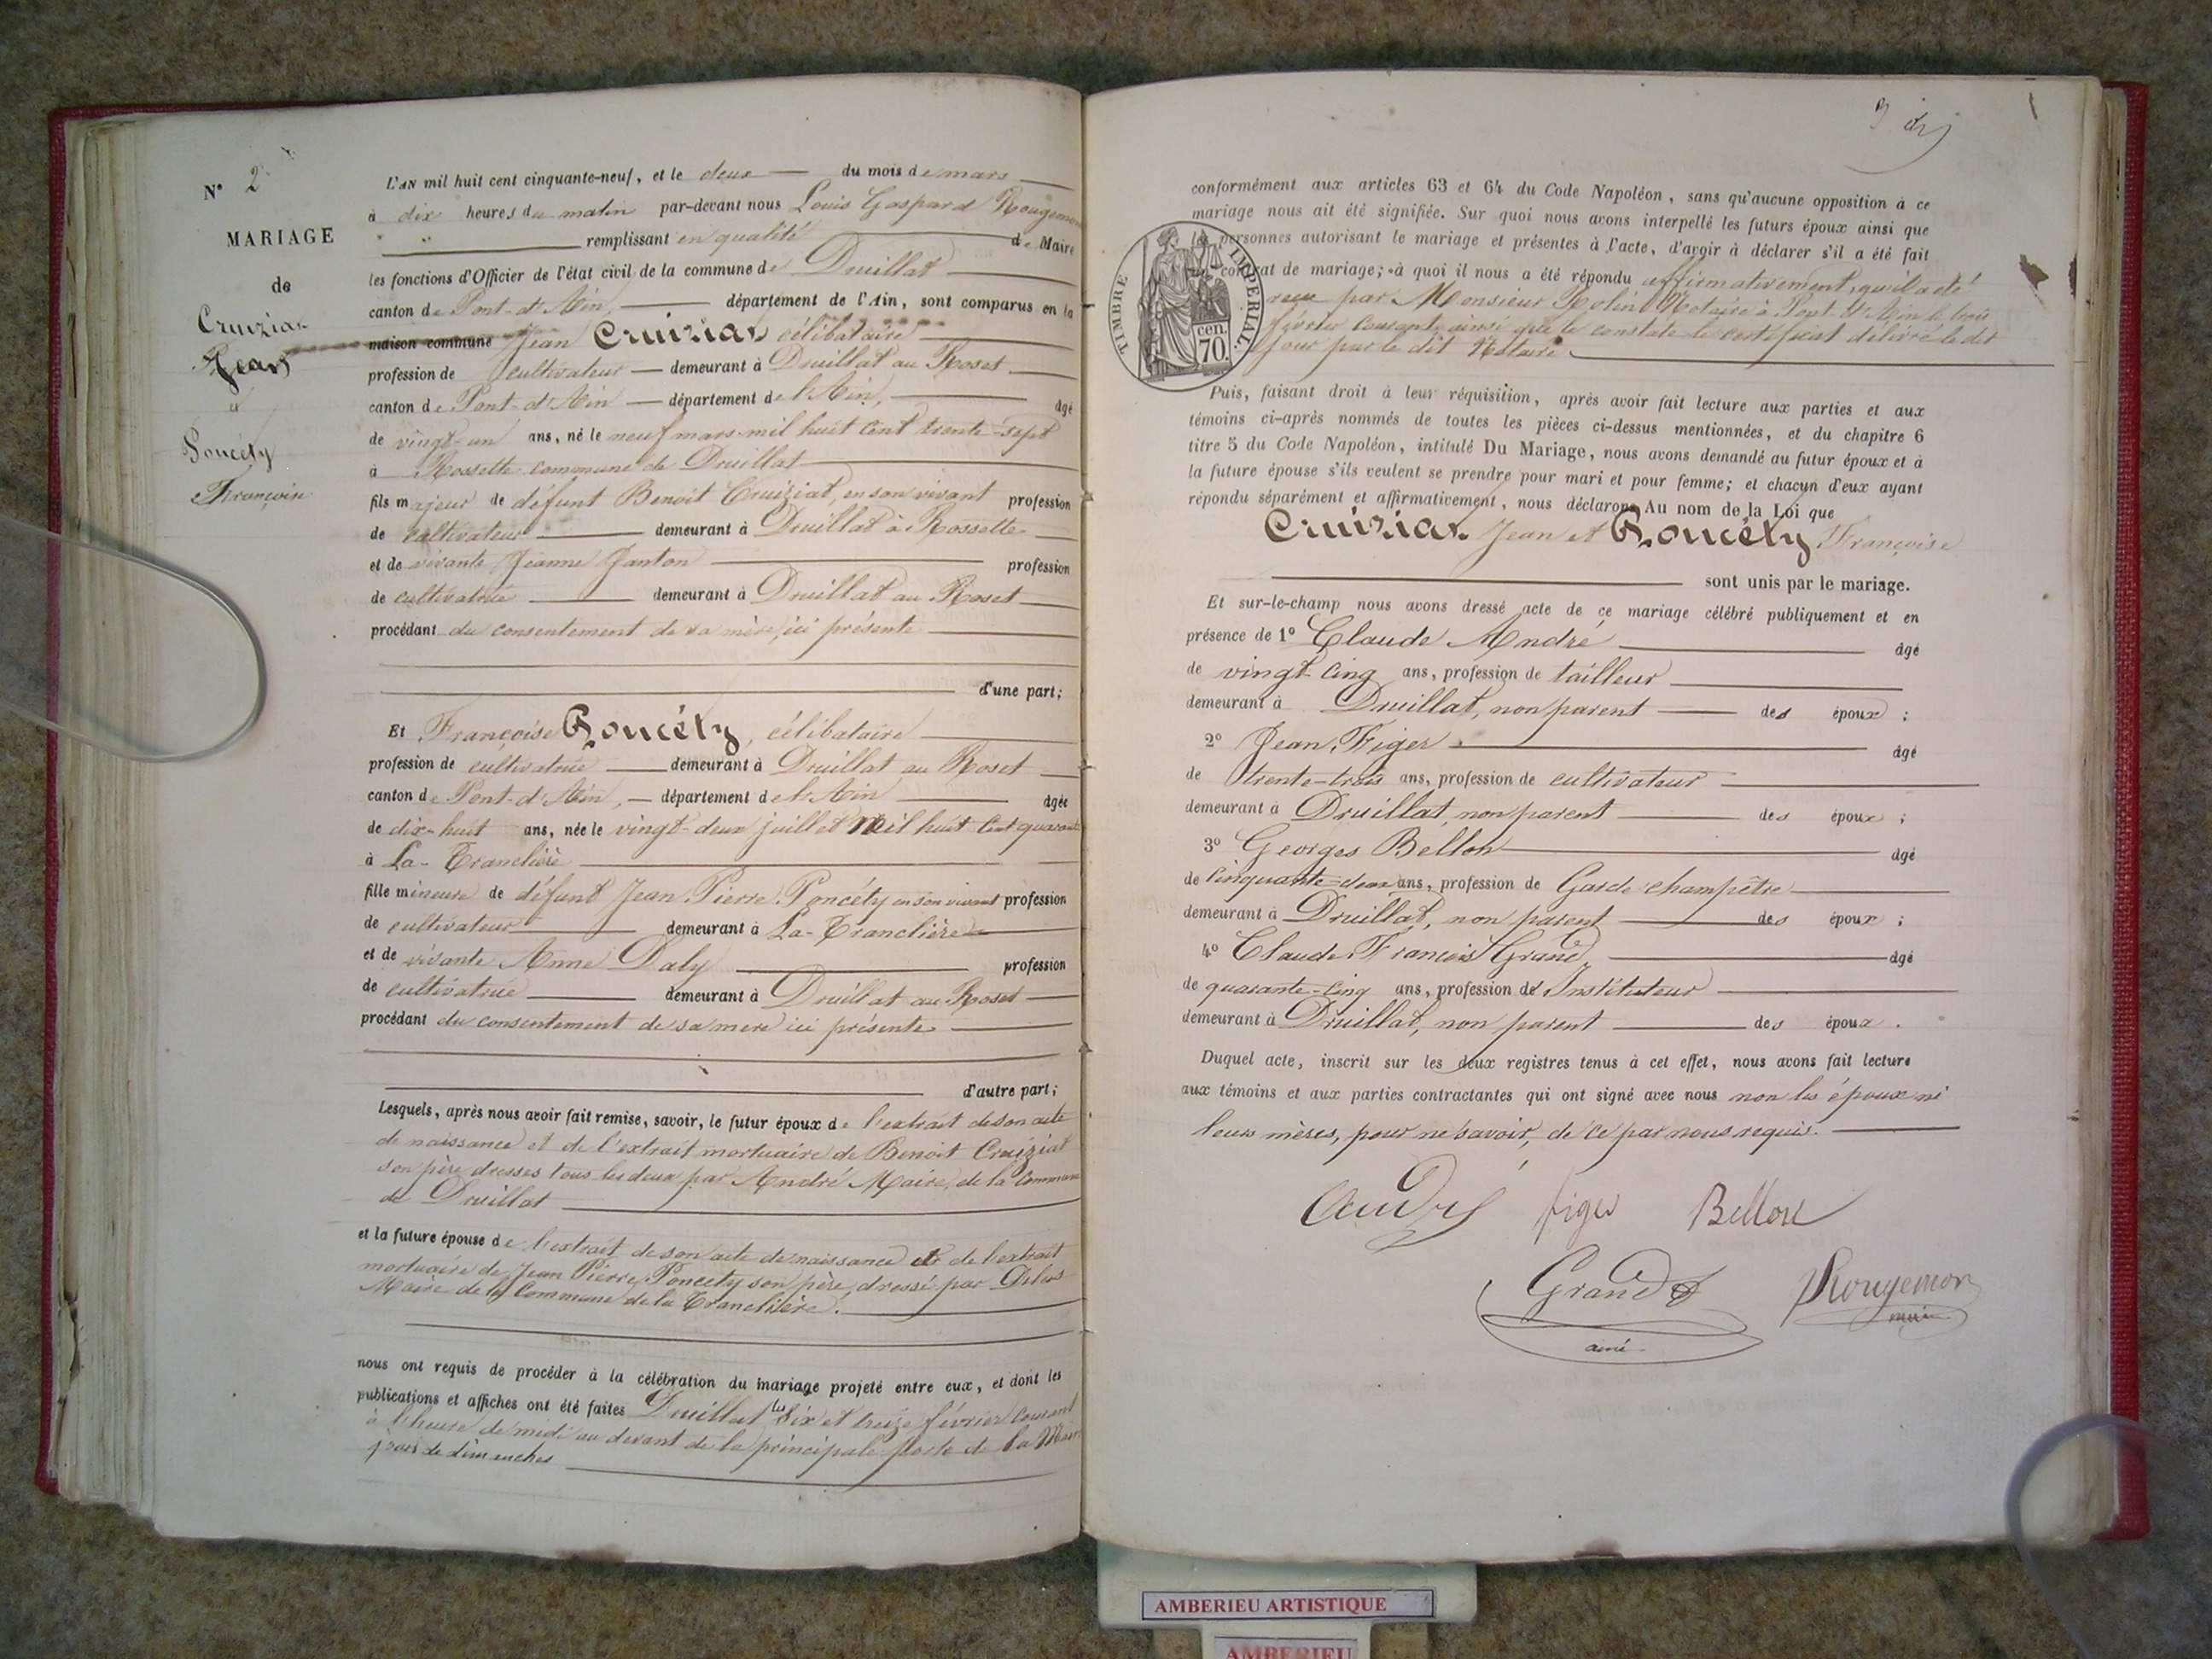 N° 2
MARIAGE
de
Cruiziat
Jean
et
Poncéty
Françoise
L'AN mil huit cent cinquante-neuf, et le deux du mois de mars
à dix heures du matin par-devant nous Louis Gaspard Rougemont
remplissant en qualité de Maire
les fonctions d'Officier de l'état civil de la commune de Druillat
canton de Pont-d'Ain, département de l'Ain, sont comparus en la
maison commune Jean Cruiziat célibataire
profession de cultivateur demeurant à Druillat au Roset
canton de Pont-d'Ain département de l'Ain, âgé
de vingt-un ans, né le neuf mars mil huit cent trente-sept
à Rossette commune de Druillat
fils majeur de défunt Benoit Cruiziat, en son vivant profession
de cultivateur demeurant à Druillat à Rossette
et de vivante Jeanne Janton profession
de cultivatrice demeurant à Druillat au Roset
procédant du consentement de sa mère, ici présente
d'une part;
Et Françoise Poncéty, célibataire
profession de cultivatrice demeurant à Druillat au Roset
canton de Pont-d'Ain, département de l'Ain âgée
de dix-huit ans, née le vingt-deux juillet mil huit cent quarante
à La-Tranclière
fille mineure de défunt Jean Pierre Poncéty en son vivant profession
de cultivateur demeurant à La-Tranclière
et de vivante Anne Daly profession
de cultivatrice demeurant à Druillat au Roset
procédant du consentement de sa mere ici présente
d'autre part;
Lesquels, après nous avoir fait remise, savoir, le futur époux de l'extrait de son acte
de naissance et de l'extrait mortuaire de Benoit Cruiziat
son père dressés tous les deux par André Maire, de la Commune
de Druillat
et la future épouse de l'extrait de son acte de naissance et de l'extrait
mortuaire de Jean Pierre Poncéty son père, dressé par
Maire de la Commune de la Tranclière.
nous ont requis de procéder à la célébration du mariage projeté entre eux, et dont les
publications et affiches ont été faites Druillat les six et treize février courant
à l'heure de midi au devant de la principale porte de la Mairie
jours de dimanches
conformément aux articles 63 et 64 du Code Napoléon, sans qu'aucune opposition à ce
mariage nous ait été signifiée. Sur quoi nous avons interpellé les futurs époux ainsi que
les personnes autorisant le mariage et présentes à l'acte, d'avoir à déclarer s'il a été fait
contrat de mariage; à quoi il nous a été répondu affirmativement, qu'il a été
reçu par Monsieur Rolin Notaire à Pont-d'Ain le trois
février courant, ainsi que le constate le certificat délivré le dit
jour par le dit Notaire
TIMBRE IMPERIAL
70 cen.
Puis, faisant droit à leur réquisition, après avoir fait lecture aux parties et aux
témoins ci-après nommés de toutes les pièces ci-dessus mentionnées, et du chapitre 6
titre 5 du Code Napoléon, intitulé Du Mariage, nous avons demandé au futur époux et à
la future épouse s'ils veulent se prendre pour mari et pour femme; et chacun d'eux ayant
répondu séparément et affirmativement, nous déclarons Au nom de la Loi que
Cruiziat Jean et Poncéty Françoise
sont unis par le mariage.
Et sur-le-champ nous avons dressé acte de ce mariage célébré publiquement et en
présence de 1° Claude André âgé
de vingt-cinq ans, profession de tailleur
demeurant à Druillat, non parent des époux;
2° Jean Figer âgé
de trente-trois ans, profession de cultivateur
demeurant à Druillat, non parent des époux;
3° Georges Bellon âgé
de cinquante-deux ans, profession de Garde champêtre
demeurant à Druillat, non parent des époux;
4° Claude François Grand âgé
de quarante-cinq ans, profession de Instituteur
demeurant à Druillat, non parent des époux.
Duquel acte, inscrit sur les deux registres tenus à cet effet, nous avons fait lecture
aux témoins et aux parties contractantes qui ont signé avec nous non les époux ni
leurs mères, pour ne savoir, de ce par nous requis.
André figer Bellon
Grand Rougemont
ainé maire
AMBERIEU ARTISTIQUE
AMBERIEU